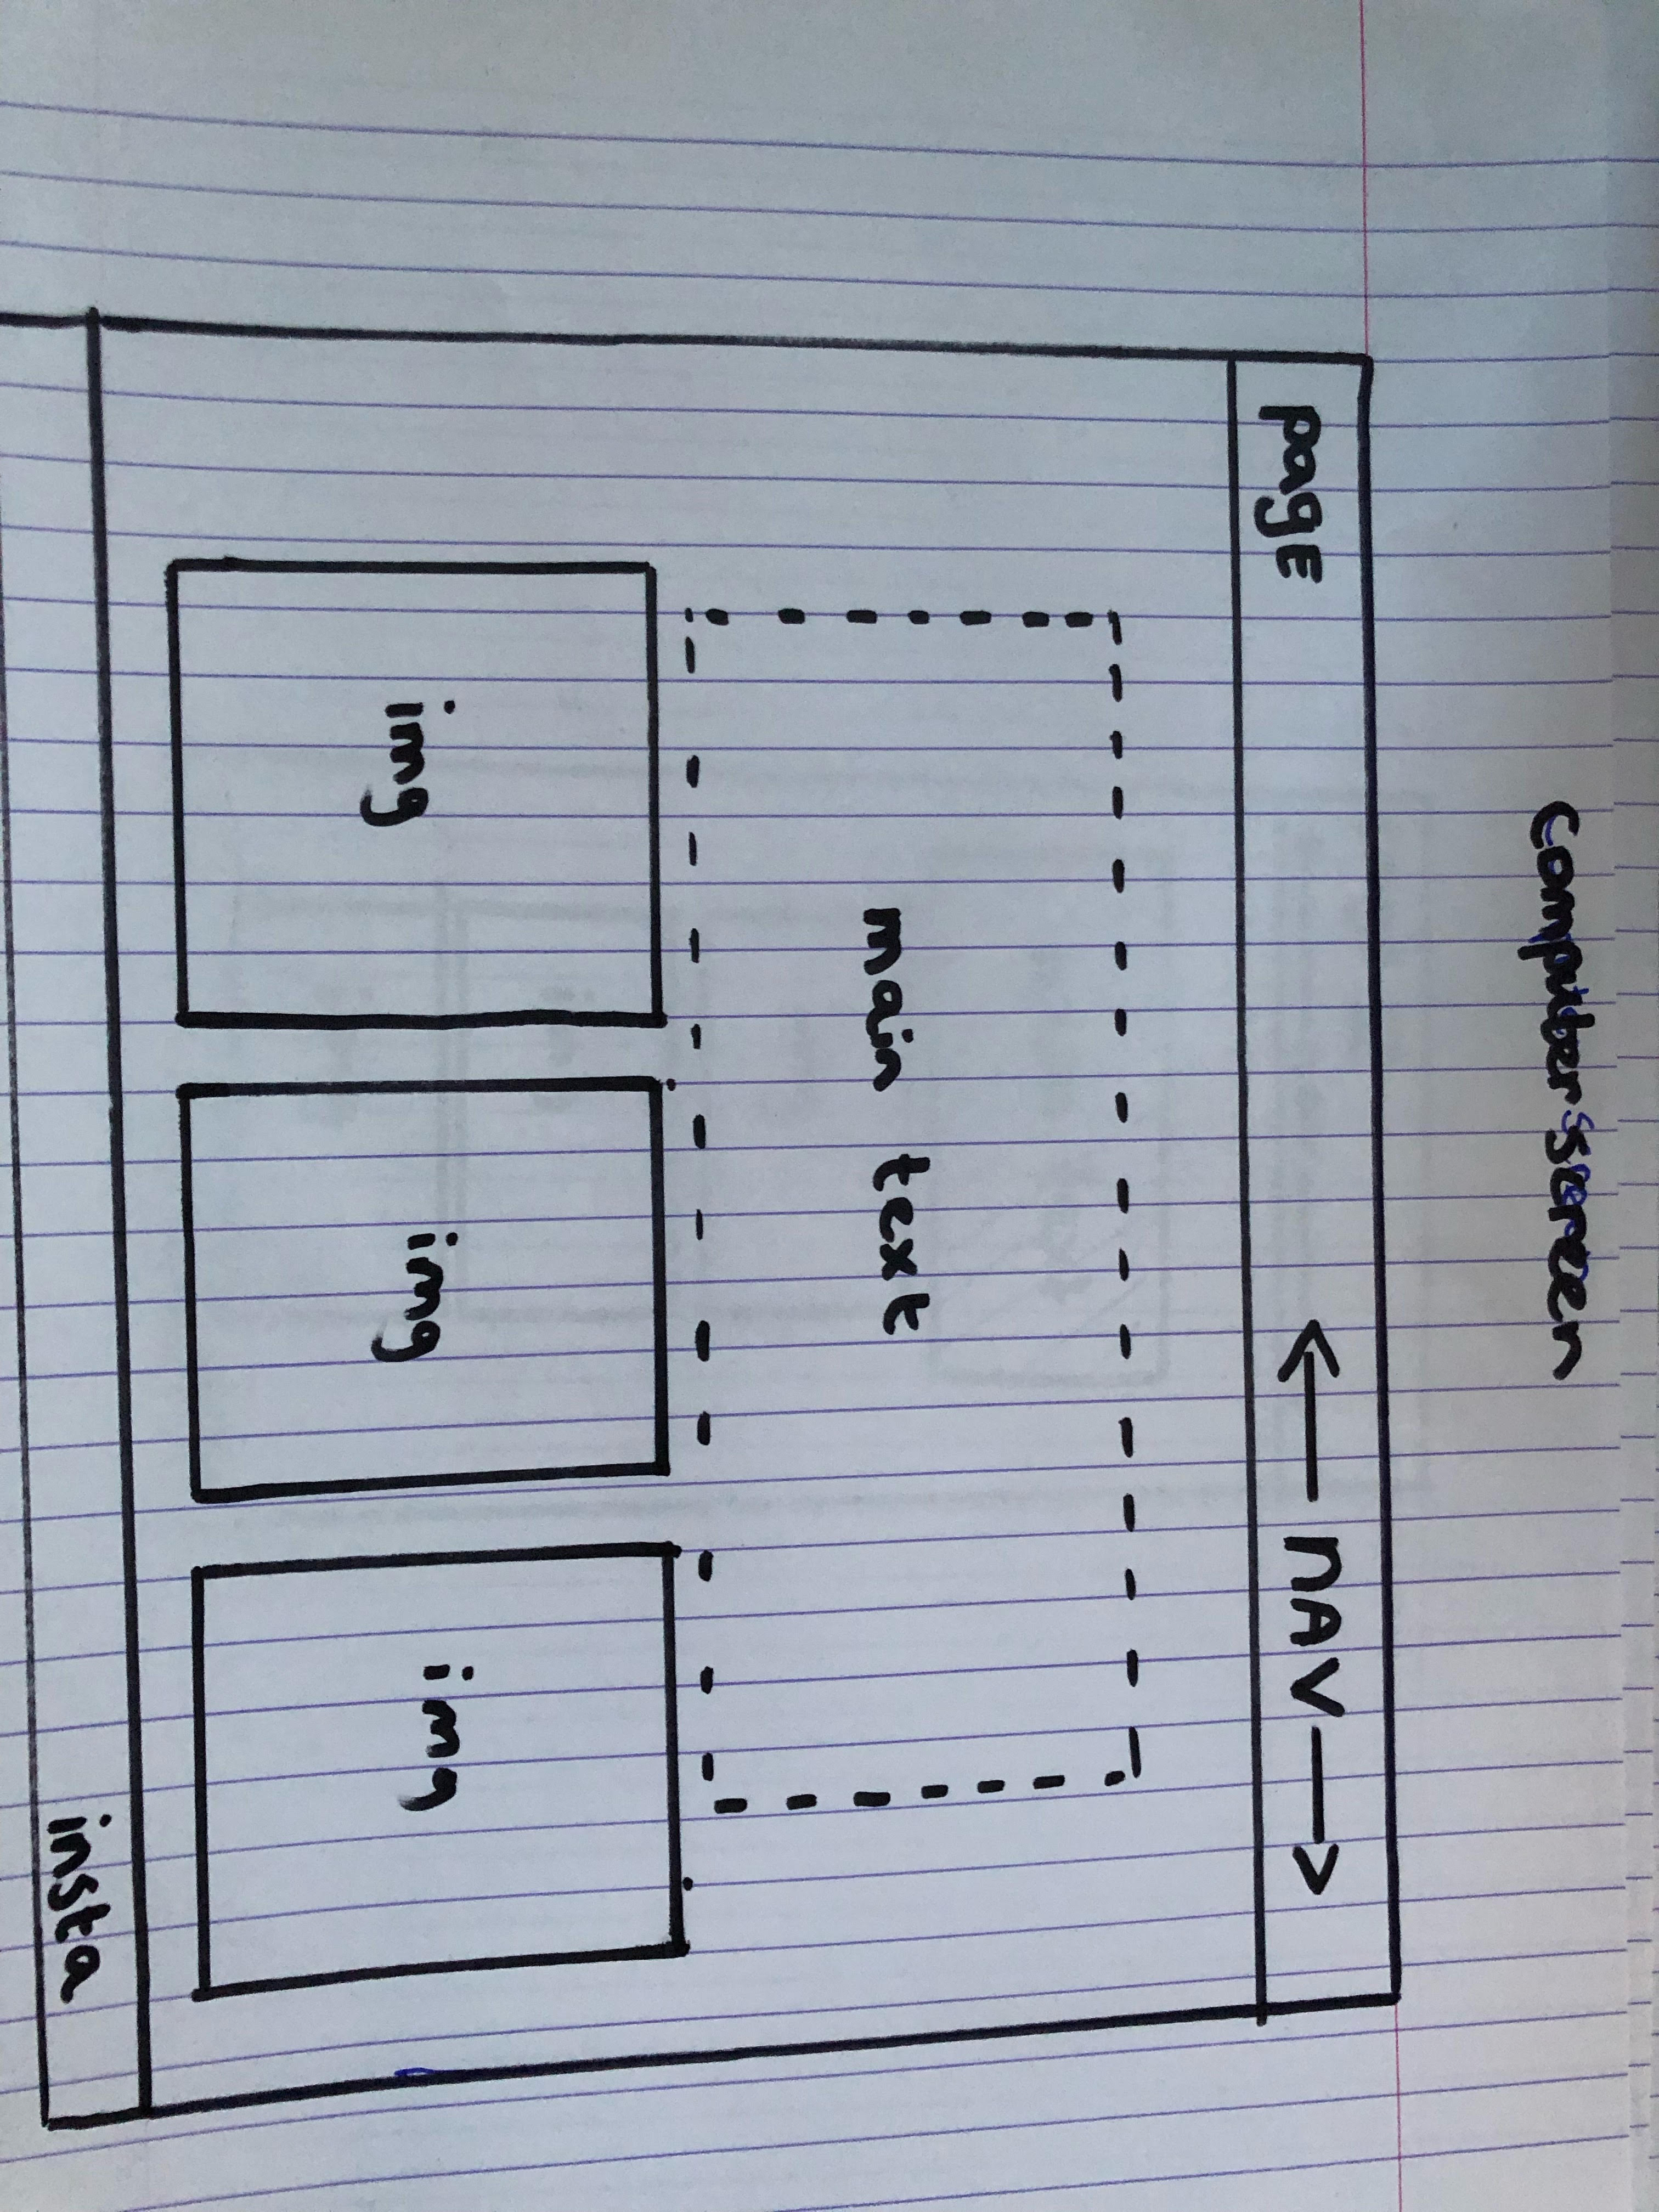 Computer Screen
page ← nAV →
main text
img img img
insta